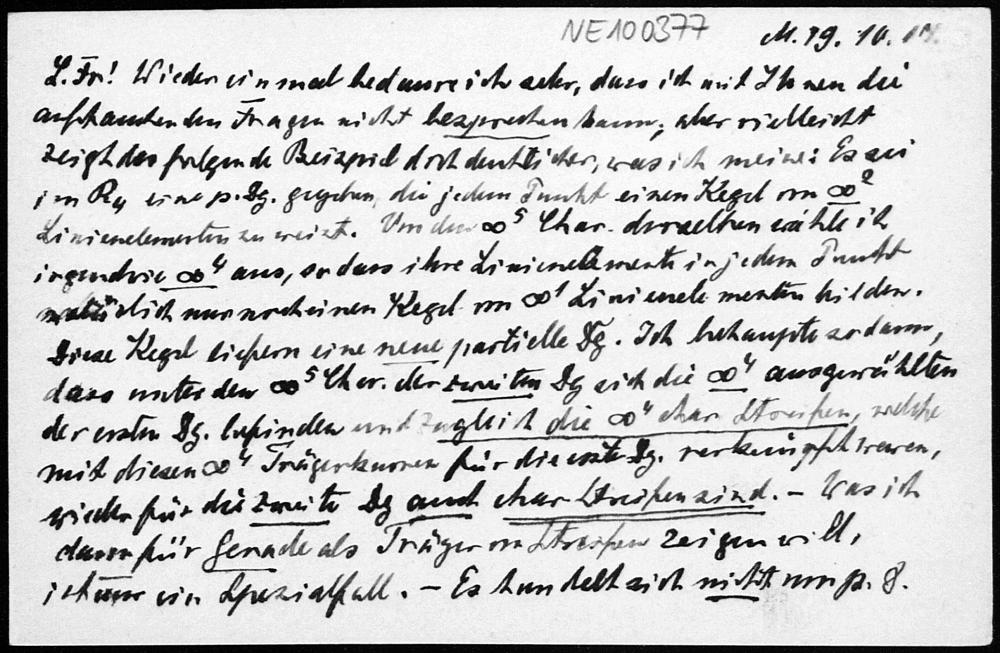 NE100377
M. 19. 10.
L. Fr! Wieder einmal bedaure ich sehr, dass ich mit Ihnen die
auftauchenden Fragen nicht besprechen kann, aber vielleicht
zeigt das folgende Beispiel doch deutlicher, was ich meine: Es sei
im R4 eine p. Dg. gegeben, die jedem Punkt einen Kegel von ∞²
Linienelementen zuweist. Von den ∞⁵ Char. derselben wähle ich
irgendwie ∞⁴ aus, so dass ihre Linienelemente in jedem Punkt
natürlich nur noch einen Kegel von ∞¹ Linienelementen bilden.
Diese Kegel liefern eine neue partielle Dg. Ich behaupte so dann,
dass unter den ∞⁵ Char. der zweiten Dg sich die ∞⁴ ausgewählten
der ersten Dg. befinden und zugleich die ∞⁴ char Streifen, welche
mit diesen ∞⁴ Trägerkurven für die erste Dg. verknüpft waren,
wieder für die zweite Dg auch char Streifen sind. – Was ich
dann für Gerade als Träger von Streifen zeigen will,
ist nur ein Spezialfall. – Es handelt sich nicht um p. J.